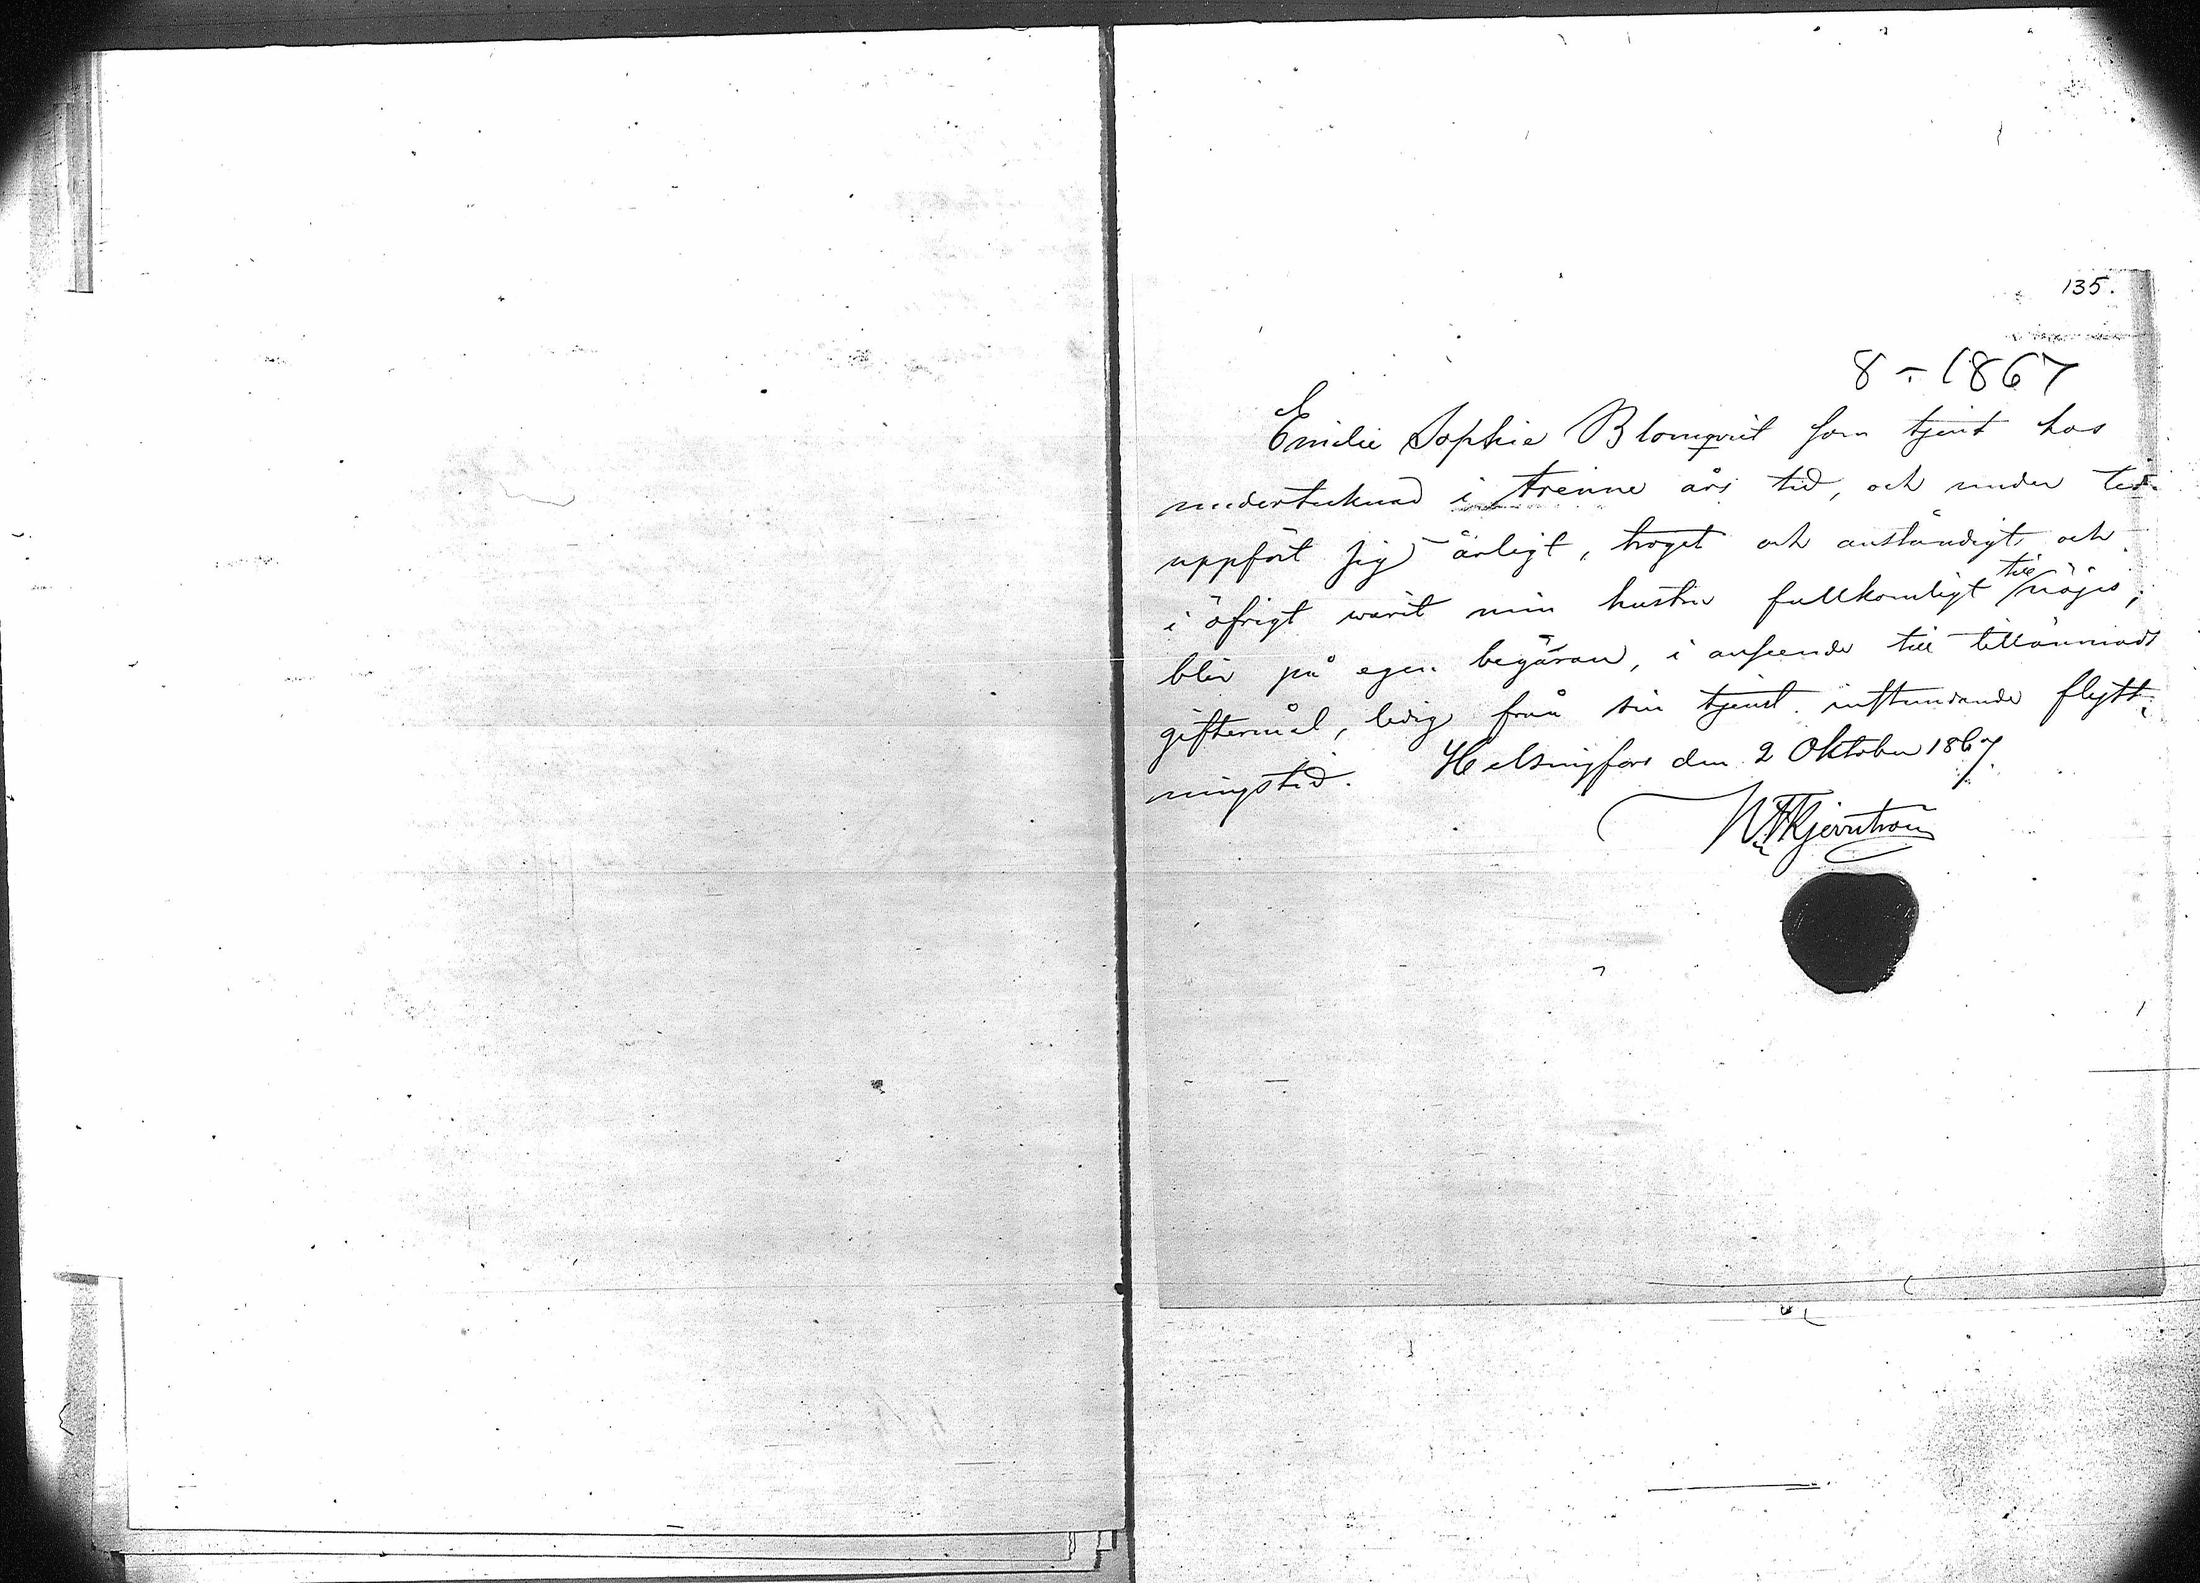 135.
8-1867
Emilie Sophie Blomqvist som tjent hos
undertecknad i trenne års tid, och under tid.
uppfört sig ärligt, troget och anständigt och
i öfrigt warit min hustru fullkomligt till nöjes,
blir på egen begäran, i anseende till tillämnadt
giftermål, ledig från sin tjenst instundande flytt-
ningstid. Helsingfors den 2 Oktober 1867.